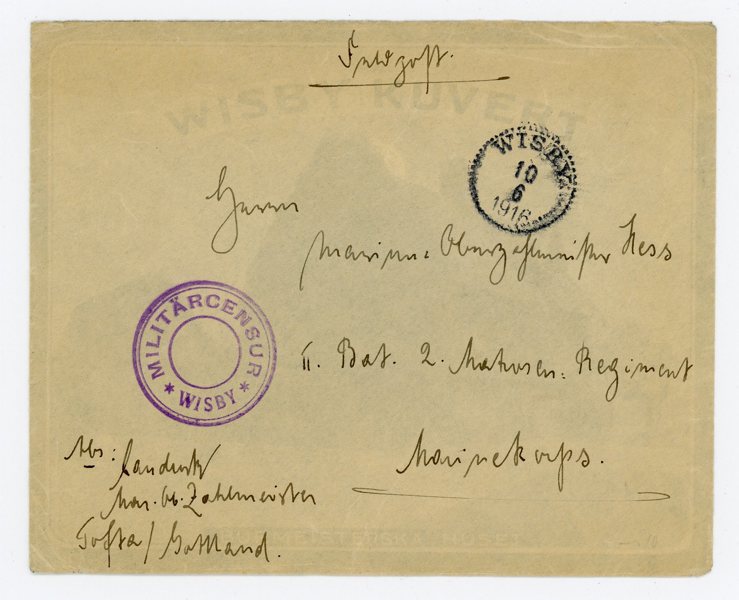 Feldpost.
WISBY KUVERT
WISBY
10
6
1916
Herrn
Marine-Oberzahlmeister Hess
MILITÄRCENSUR
* WISBY *
II. Bat. 2. Matrosen-Regiment
Marinekorps.
Abs:
Mar. Ob. Zahlmeister
Tofta / Gottland.